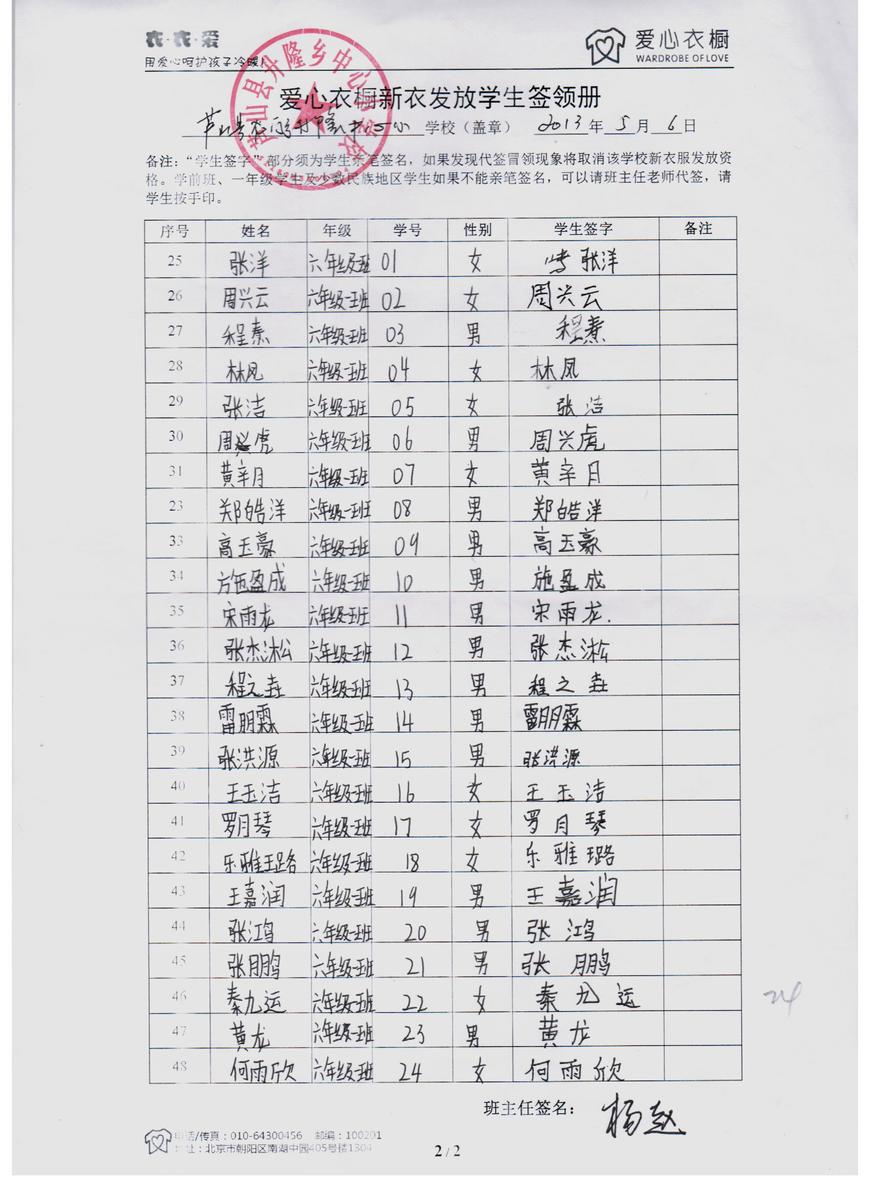 衣·衣·爱
用爱心呵护孩子冷暖!
爱心衣橱
WARDROBE OF LOVE
芦山县升隆乡中心小学校
爱心衣橱新衣发放学生签领册
学校（盖章） 2013 年 5 月 6 日
备注：“学生签字”部分须为学生亲笔签名，如果发现代签冒领现象将取消该学校新衣服发放资
格。学前班、一年级学生及少数民族地区学生如果不能亲笔签名，可以请班主任老师代签，请
学生按手印。
序号 姓名 年级 学号 性别 学生签字 备注
25 张洋 六年级一班 01 女 张洋
26 周兴云 六年级一班 02 女 周兴云
27 程骉 六年级一班 03 男 程骉
28 林凤 六年级一班 04 女 林凤
29 张洁 六年级一班 05 女 张洁
30 周兴虎 六年级一班 06 男 周兴虎
31 黄辛月 六年级一班 07 女 黄辛月
23 郑皓洋 六年级一班 08 男 郑皓洋
33 高玉豪 六年级一班 09 男 高玉豪
34 施盈成 六年级一班 10 男 施盈成
35 宋雨龙 六年级一班 11 男 宋雨龙.
36 张杰淞 六年级一班 12 男 张杰淞
37 程之垚 六年级一班 13 男 程之垚
38 雷朋霖 六年级一班 14 男 雷朋霖
39 张洪源 六年级一班 15 男 张洪源
40 王玉洁 六年级一班 16 女 王玉洁
41 罗月琴 六年级一班 17 女 罗月琴
42 乐雅璐 六年级一班 18 女 乐雅璐
43 王嘉润 六年级一班 19 男 王嘉润
44 张鸿 六年级一班 20 男 张鸿
45 张鹏 六年级一班 21 男 张鹏
46 秦九运 六年级一班 22 女 秦九运
47 黄龙 六年级一班 23 男 黄龙
48 何雨欣 六年级一班 24 女 何雨欣
24
班主任签名： 杨赵
电话/传真：010-64300456 邮编：100201
地址：北京市朝阳区南湖中园405号楼1304
2 / 2